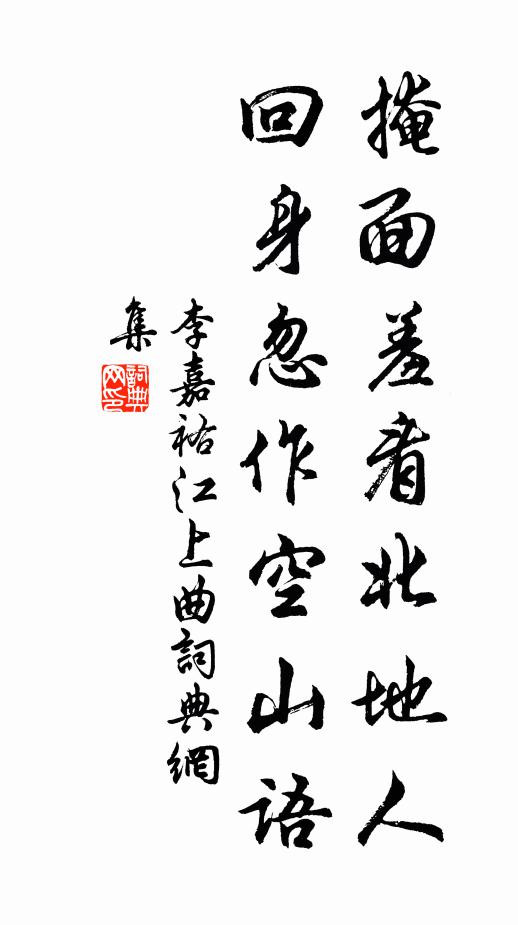 掩面羞看北地人
回身忽作空山語
李嘉祐江上曲詞典網
集
詞典网印